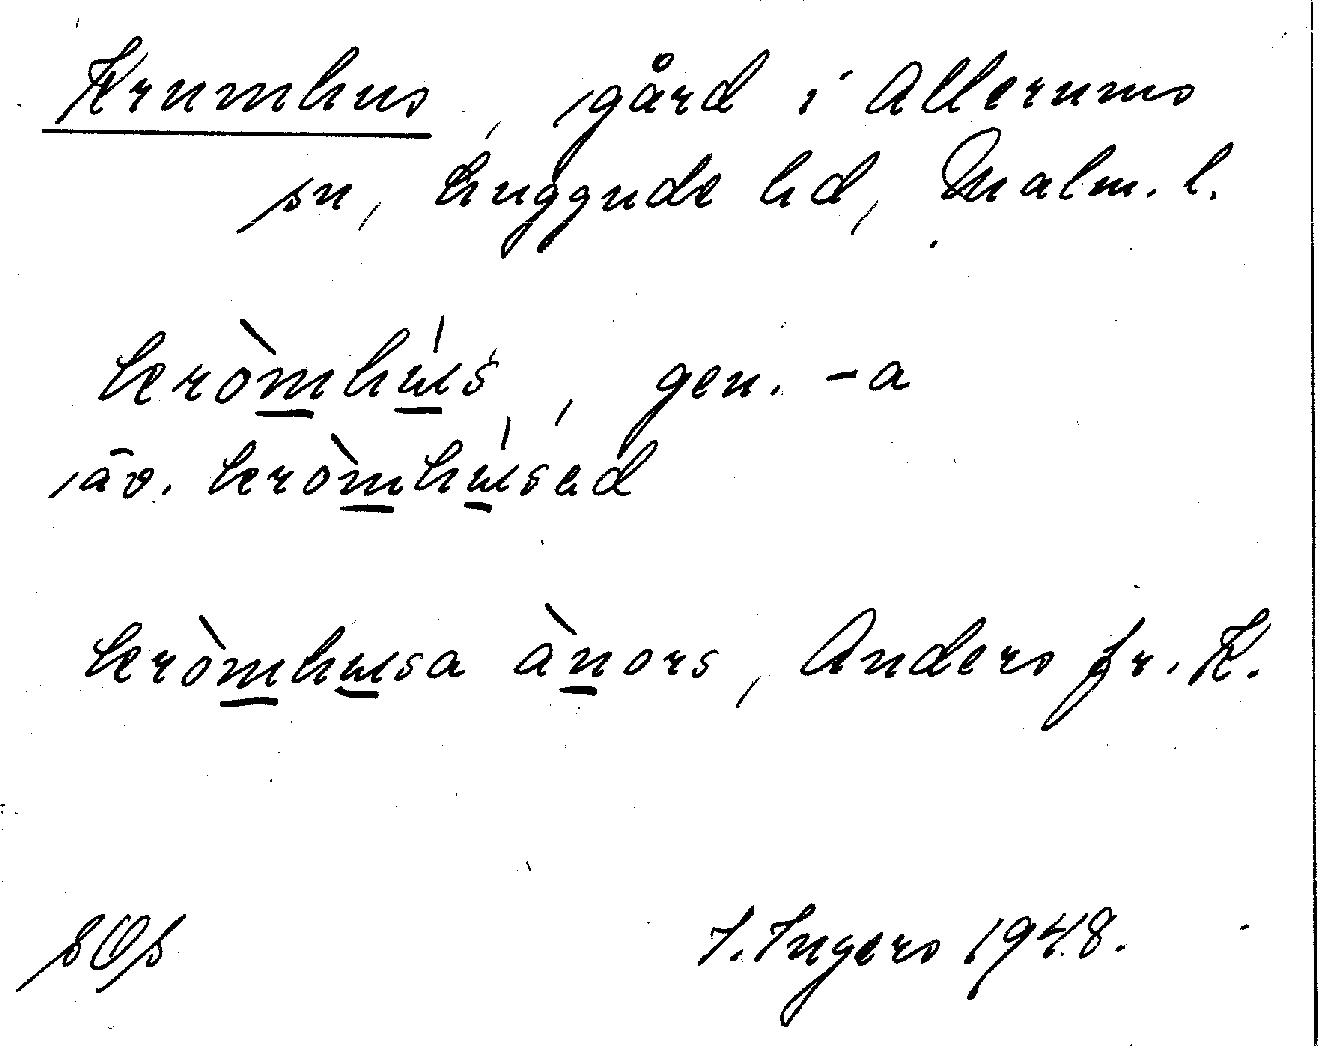 Krumhus, gård i Allerums
sn, Luggude hd, Malm. l.
kròmhús, gen. -a
äv. kròmhúsad
kròmhusa ànors, Anders fr. K.
sOs I. Ingers 1948.